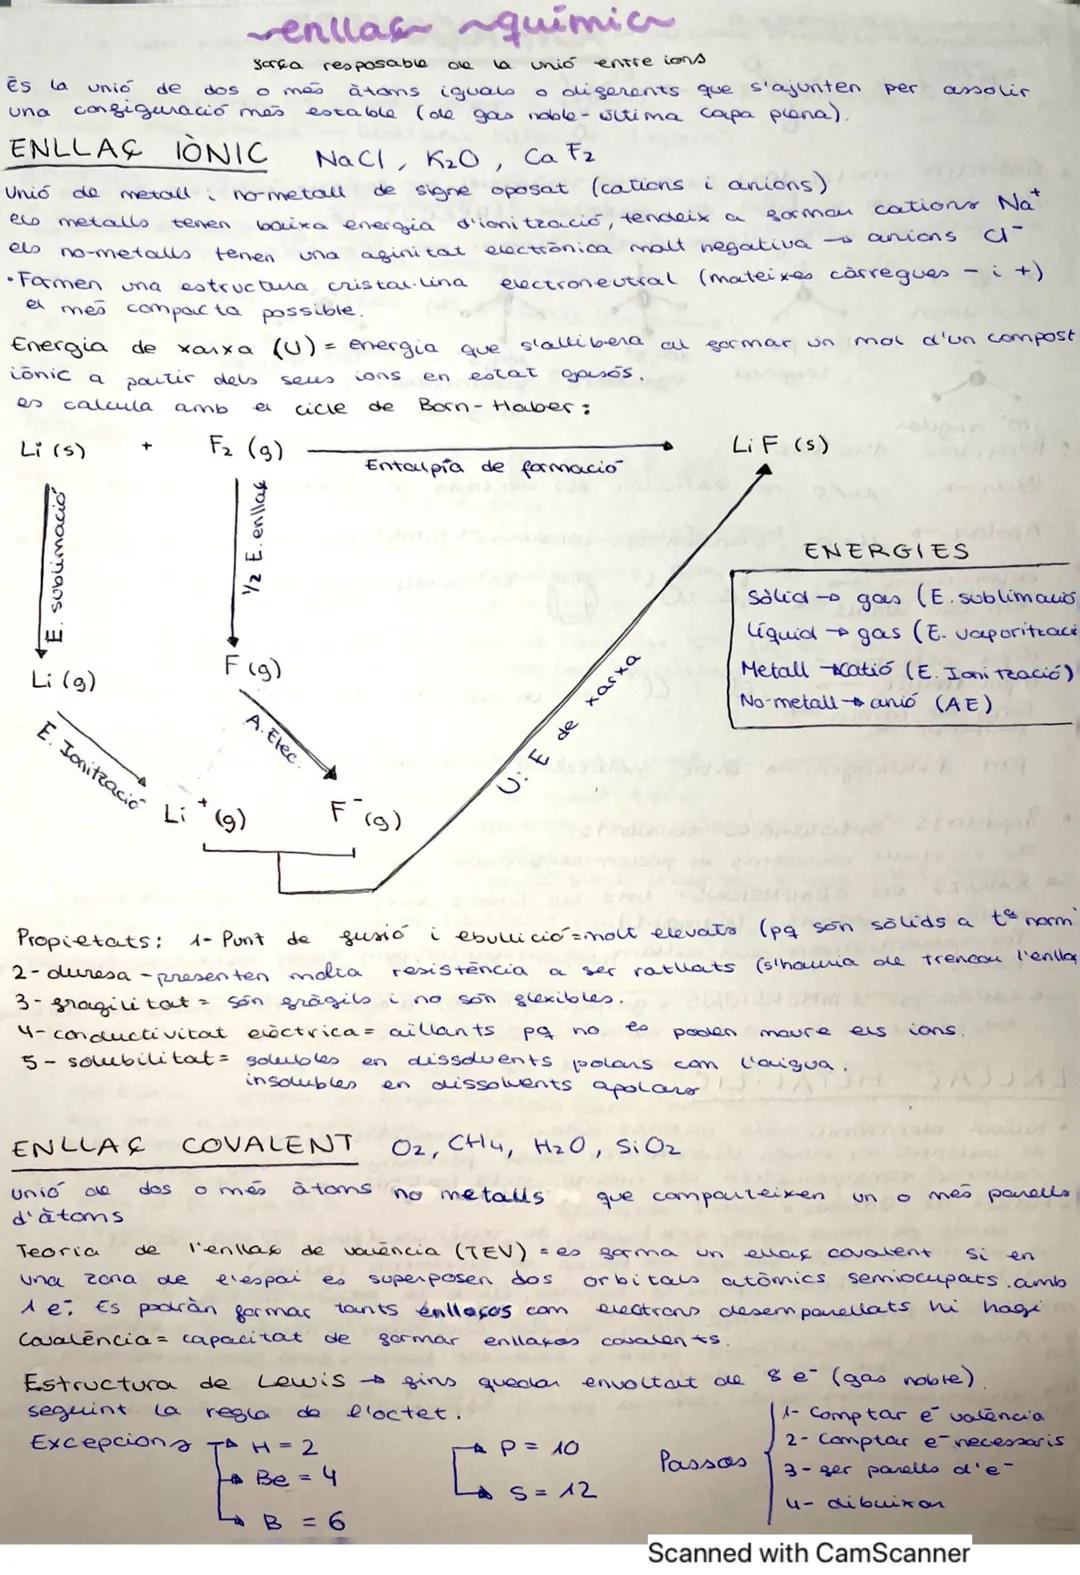 enllaç químic
força resposable de la unió entre ions
És la unió de dos o més àtoms iguals o diferents que s'ajunten per assolir
una configuració més estable (de gas noble - última capa plena).
ENLLAÇ IÒNIC NaCl, K₂O, CaF₂
Unió de metall i no-metall de signe oposat (cations i anions)
els metalls tenen baixa energia d'ionització, tendeix a formar cations Na⁺
els no-metalls tenen una afinitat electrònica molt negativa → anions Cl⁻
• Formen una estructura cristal·lina electroneutral (mateixes càrregues - i +)
el més compacta possible.
Energia de xarxa (U) = energia que s'allibera al formar un mol d'un compost
iònic a partir dels seus ions en estat gasós.
es calcula amb el cicle de Born-Haber:
Li (s) + F₂ (g) → LiF (s)
Entalpía de formació
E. sublimació
1/2 E. enllaç
ENERGIES
Sòlid → gas (E. sublimació
Líquid → gas (E. vaporitzaci
Metall → catió (E. Ionització)
No-metall → anió (AE)
Li (g)
F (g)
E. Ionització
A. Elec.
U: E de xarxa
Li⁺ (g) F⁻ (g)
Propietats: 1- Punt de fusió i ebullició = molt elevats (pq són sòlids a tª norm
2- duresa - presenten molta resistència a ser ratllats (s'hauria de trencar l'enlla
3- fragilitat = són fràgils i no són flexibles.
4- conductivitat elèctrica = aillants pq no es poden moure els ions.
5- solubilitat = solubles en dissolvents polars com l'aigua.
insolubles en dissolvents apolars
ENLLAÇ COVALENT O₂, CH₄, H₂O, SiO₂
unió de dos o més àtoms no metalls que comparteixen un o més parells
d'àtoms
Teoria de l'enllaç de valència (TEV) = es forma un ellaç covalent si en
una zona de l'espai es superposen dos orbitals atòmics semiocupats amb
1 e⁻. Es podràn formar tants enllaços com electrons desemparellats hi hagi
Covalència = capacitat de formar enllaços covalents.
Estructura de Lewis → fins quedar envoltat de 8 e⁻ (gas noble)
seguint la regla de l'octet.
Excepcions → H = 2
→ Be = 4
→ B = 6
→ P = 10
→ S = 12
Passos
1- Comptar e⁻ valència
2- Comptar e⁻ necessaris
3- fer parells d'e⁻
4- dibuixar
Scanned with CamScanner